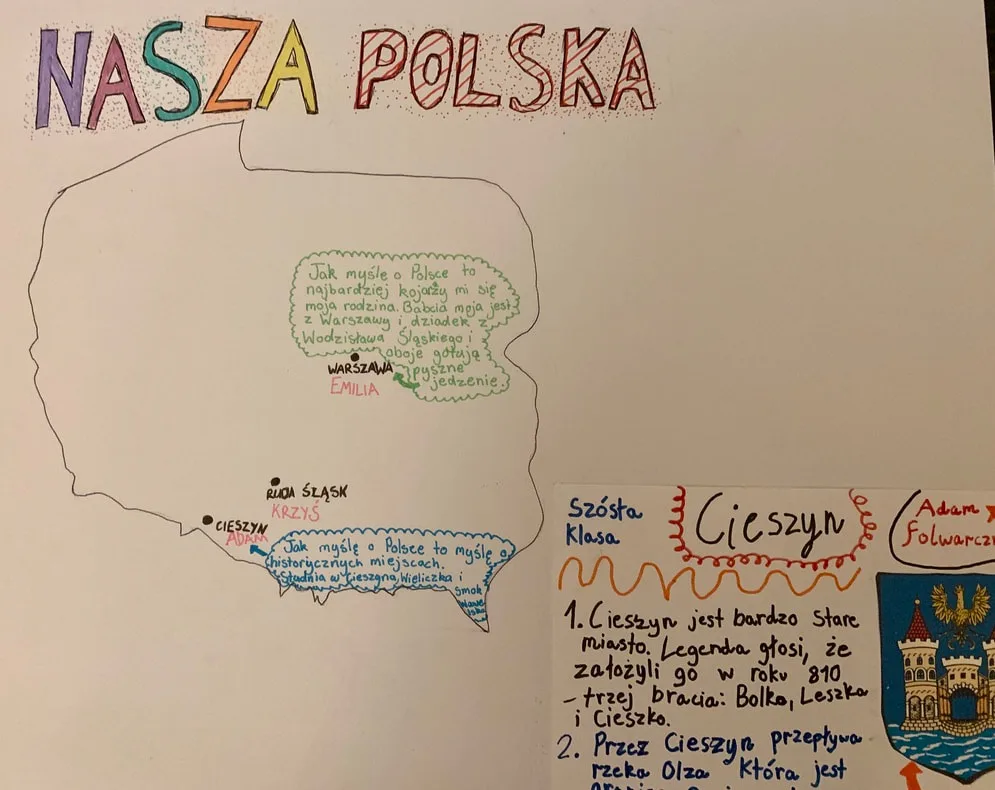 NASZA POLSKA
Jak myślę o Polsce to
najbardziej kojarzy mi się
moja rodzina. Babcia moja jest
z Warszawy i dziadek z
Wodzisława Śląskiego i
oboje gotują
pyszne
jedzenie.
WARSZAWA
EMILIA
RUDA ŚLĄSK
KRZYŚ
CIESZYN
ADAM
Jak myślę o Polsce to myślę o
historycznych miejscach.
Studnia w Cieszyna, Wieliczka i
Smok
Wawe
lski
Szósta
Klasa
Cieszyn
Adam
Folwarcz
1. Cieszyn jest bardzo stare
miasto. Legenda głosi, że
założyli go w roku 810
- trzej bracia: Bolko, Leszka
i Cieszko.
2. Przez Cieszyn przepływa
rzeka Olza Która jest